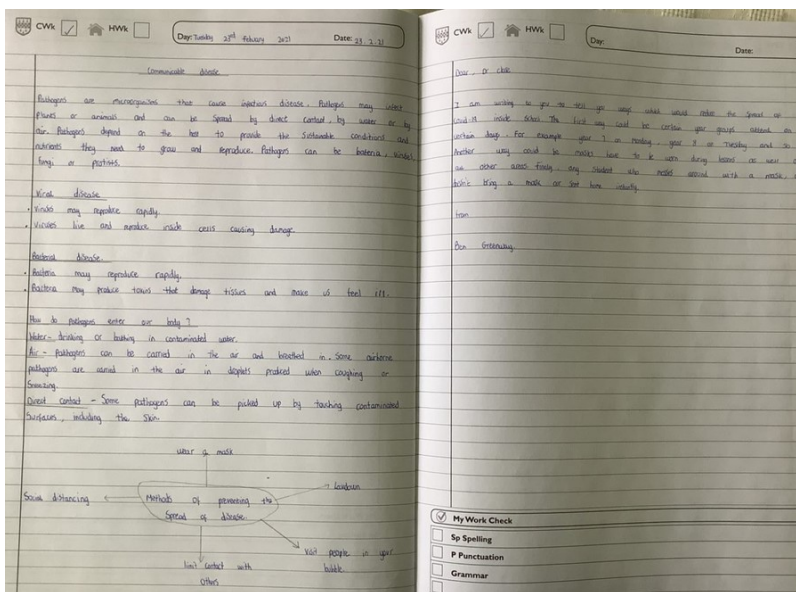 CWk HWk Day: Tuesday 23rd February 2021 Date: 23.2.21
Communicable disease
Pathogens are microorganisms that cause infectious disease. Pathogens may infect
plants or animals and can be spread by direct contact, by water or by
air. Pathogens depend on the host to provide the Sustainable conditions and
nutrients they need to grow and reproduce. Pathogens can be bacteria, viruses,
fungi, or protists.
Viral disease
• Viruses may reproduce rapidly.
• Viruses live and reproduce inside cells causing damage.
Bacterial disease.
• Bacteria may reproduce rapidly.
• Bacteria may produce toxins that damage tissues and make us feel ill.
How do pathogens enter our body?
Water - drinking or bathing in contaminated water.
Air - Pathogens can be carried in the air and breathed in. Some airborne
pathogens are carried in the air in droplets produced when coughing or
Sneezing.
Direct contact - Some pathogens can be picked up by touching contaminated
Surfaces, including the Skin.
wear a mask
Lockdown
Social distancing
Methods of preventing the
Spread of disease.
Visit people in your
bubble
limit contact with
others
CWk HWk Day: Date:
Dear, Dr
I am writing to you to tell you ways which would reduce the spread of
covid-19 inside school. The first way could be certain year groups attend on
certain days. For example year 7 on Monday, year 8 on Tuesday and so
Another way could be masks have to be worn during lessons as well as
other areas. finally, any student who
didn't bring a mask
from
Ben Greenway
My Work Check
Sp Spelling
P Punctuation
Grammar